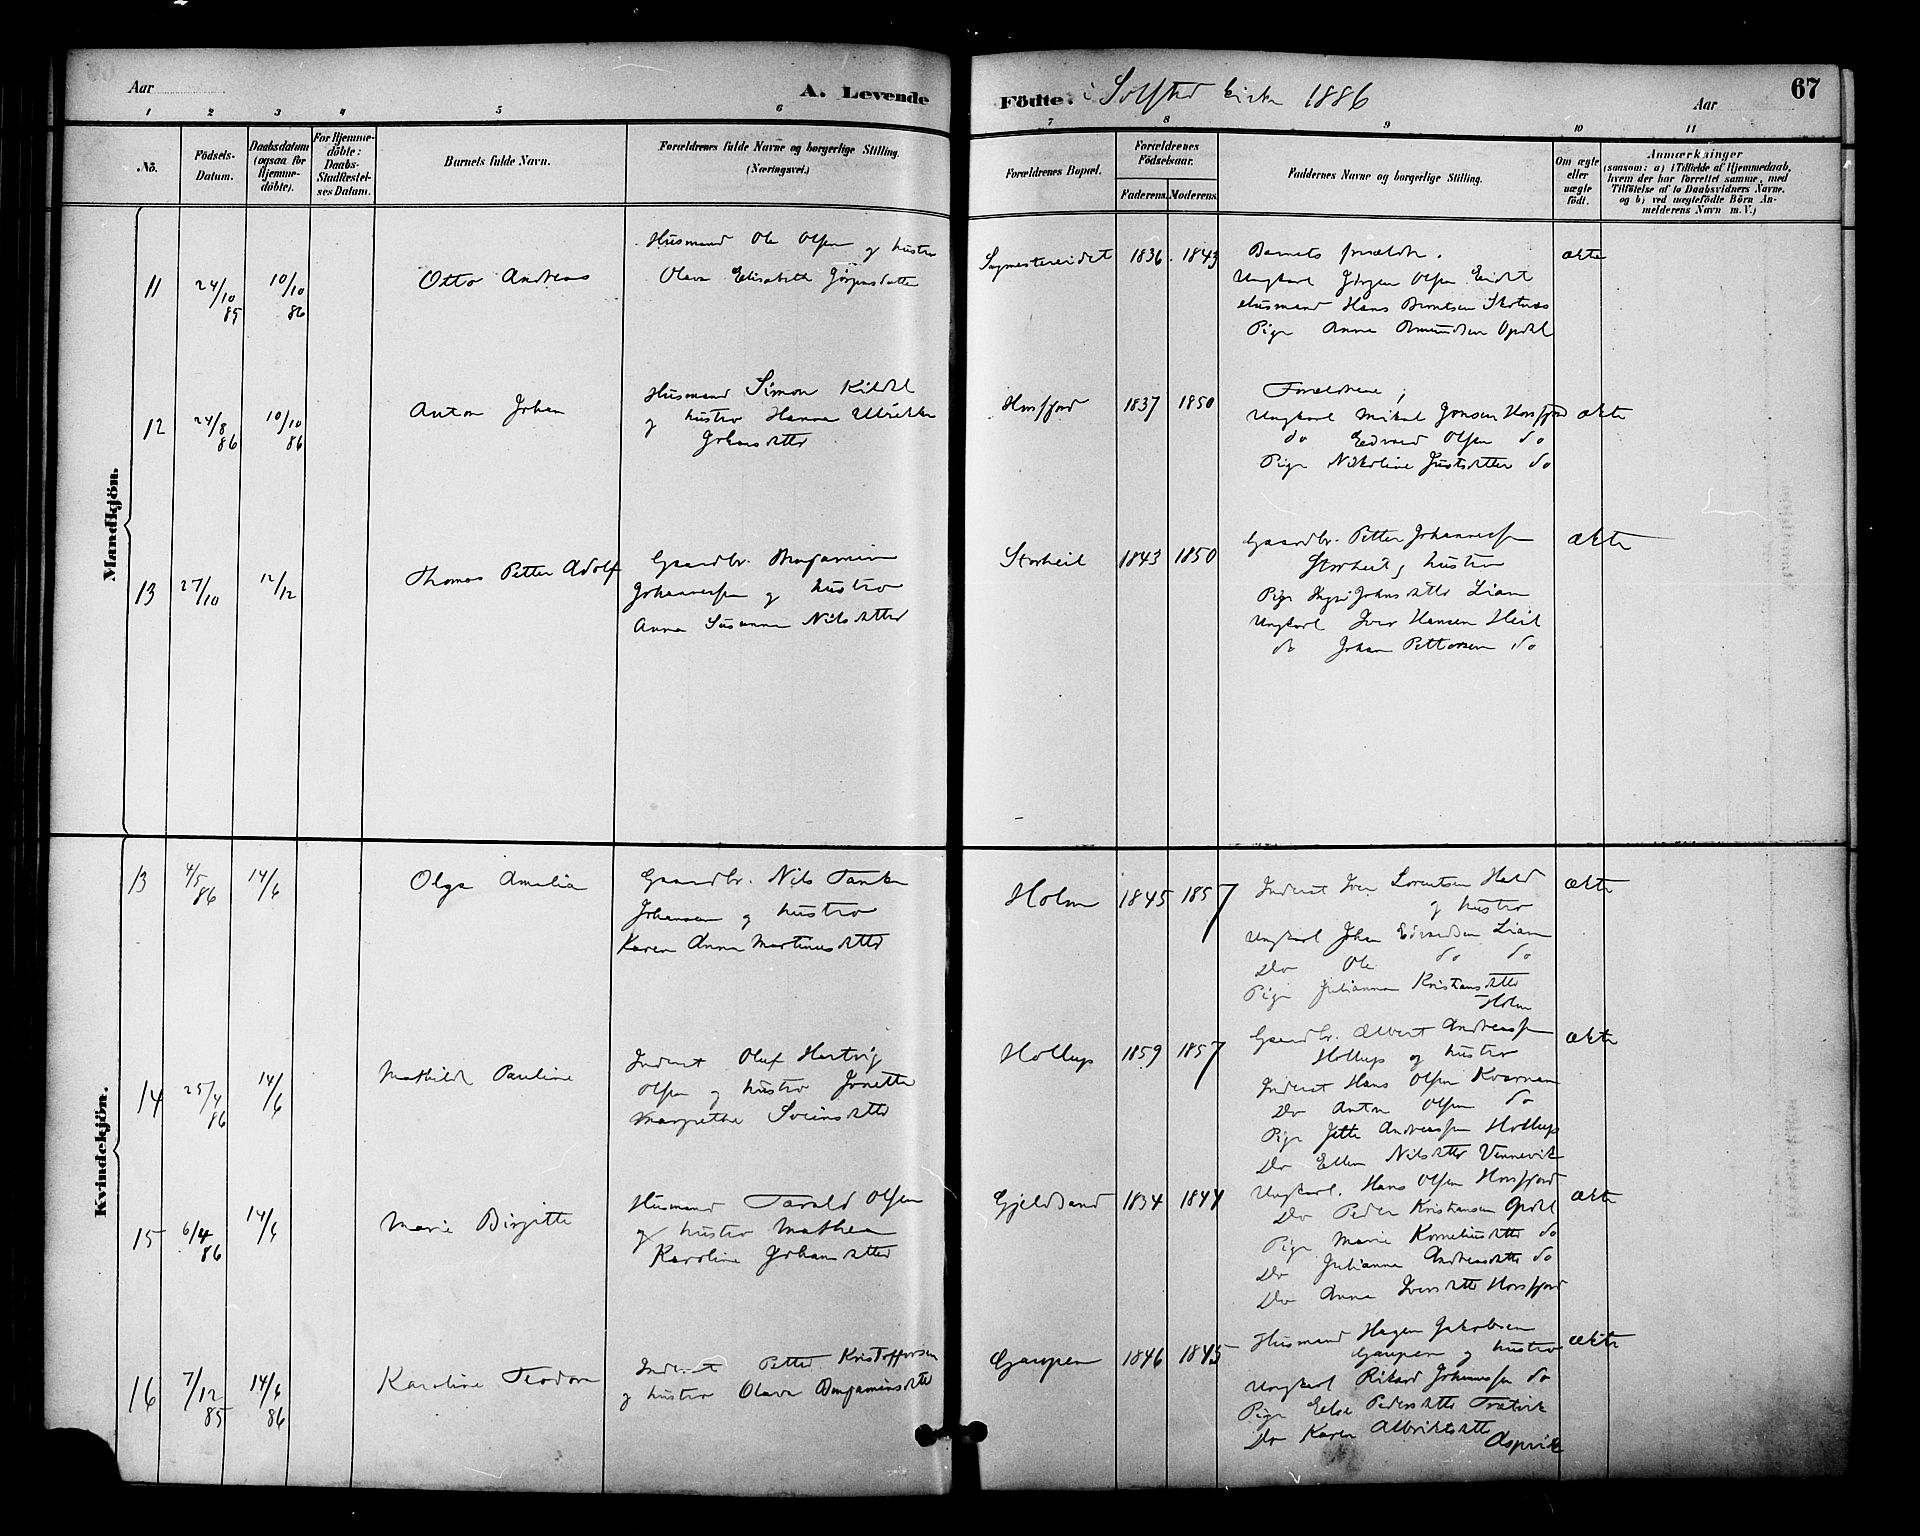 Aar A. Levende Födte. i Solstad kirke 1886 Aar 67
1 2 3 4 5 6 7 8 9 10 11
No. Födsels-Datum. Daabsdatum (ogsaa for Hjemme-döbte). For Hjemme-döbte: Daabs-Stadfæstel-ses Datum. Barnets fulde Navn. Forældrenes fulde Navne og borgerlige Stilling. (Næringsvei.) Forældrenes Bopæl. Forældrenes Födselsaar. Faderens. Moderens. Faddernes Navne og borgerlige Stilling. Om ægte eller uægte födt. Anmærkninger (saasom: a) i Tilfælde af Hjemmedaab, hvem der har forrettet samme, med Tilföielse af to Daabsvidners Navne, og b) ved uægtefödte Börn An-melderens Navn m. V.)
Mandkjön.
11 24/10 85 10/10 86 Otto Andreas
Husmand Ole Olsen og hustro
Olava Elisabeth Jørgensdatter
1836 1843
Barnets forældre.
Ungkarl Jørgen Olsen Eidet
Husmand Hans Berntsen Skotnes
Pige Anna Amundsen Opdal
ækte
12 24/8 86 10/10 86 Anton Johan
Husmand Simon Kildal
og hustro Hanna Ulrikke
Johansdtter
Horsfjord 1837 1850
Forældrene,
Ungkarl Mikal Jonsen Horsfjord
do Edvard Olsen do
Pige Nikoline Justsdtter do
ækte
13 27/10 12/12 Thomas Petter Adolf
Gaardbr. Benjamin
Johannessen og hustro
Anna Susanna Nilsdtter
Storheil 1843 1850
Gaardbr. Petter Johannessen
Storheil og hustro
Pige Johnsdtter Lian
Ungkarl Iver Hansen Heil
do Johan Pettersen do
ækte
Kvindekjön.
13 4/5 86 14/6 Olga Amalia
Gaardbr. Nils Tanke
Johansen og hustro
Karen Anna Martinusdtter
Holm 1845 1857
Inderst Iver Lorentsen Hald
og hustro
Ungkarl Johan Edvardsen Lian
Do Ole do do
Pige Julianna Kristiansdtter
Holm
ækte
14 25/4 86 14/6 Mathilde Pauline
Inderst Oluf Hartvig
Olsen og hustro Jonette
Margrethe Sveinsdtter
Hollup 1859 1857
Gaardbr. Albert Andreassen
Hollup og hustro
Inderst Hans Olsen Kvarnem
Do Anton Olsen do
Pige Jette Andreassen Hollup
Do Ellen Nilsdtter Vennevik
ækte
15 6/4 86 14/6 Marie Birgitte
Husmand Tarald Olsen
og hustro Mathea
Karoline Johansdtter
Gjeldsand 1834 1844
Ungkarl. Hans Olsen Horsfjord
Do Peder Kristiansen Opdal
Pige Marie Korneliusdtter do
Do Julianna Andreasdtter do
Do Anna Iversdtter Horsfjord
ækte
16 7/12 85 14/6 86 Karoline Teodora
Inderst Petter Kristoffersen
og hustro Olava Benjaminsdtter
Gaupen 1846 1845
Husmand Hagen Jakobsen
Gaupen og hustro
Ungkarl Rikard Johannessen do
Pige Elen Pedersdtter Tratvik
Do Karen Albriktsdtter
Aspvik
ækte